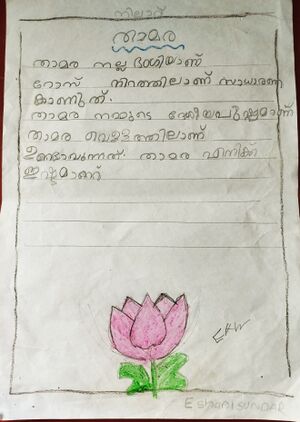 നിലാവ്
താമര
താമര നല്ല ഭംഗിയാണ്
റോസ് നിറത്തിലാണ് സാധാരണ
കാണുന്നത്.
താമര നമ്മുടെ ദേശീയപുഷ്പമാണ്
താമര വെള്ളത്തിലാണ്
ഉണ്ടാവുന്നത്. താമര എനിക്ക്
ഇഷ്ടമാണ്
EKW
ESHANI SUNDAR